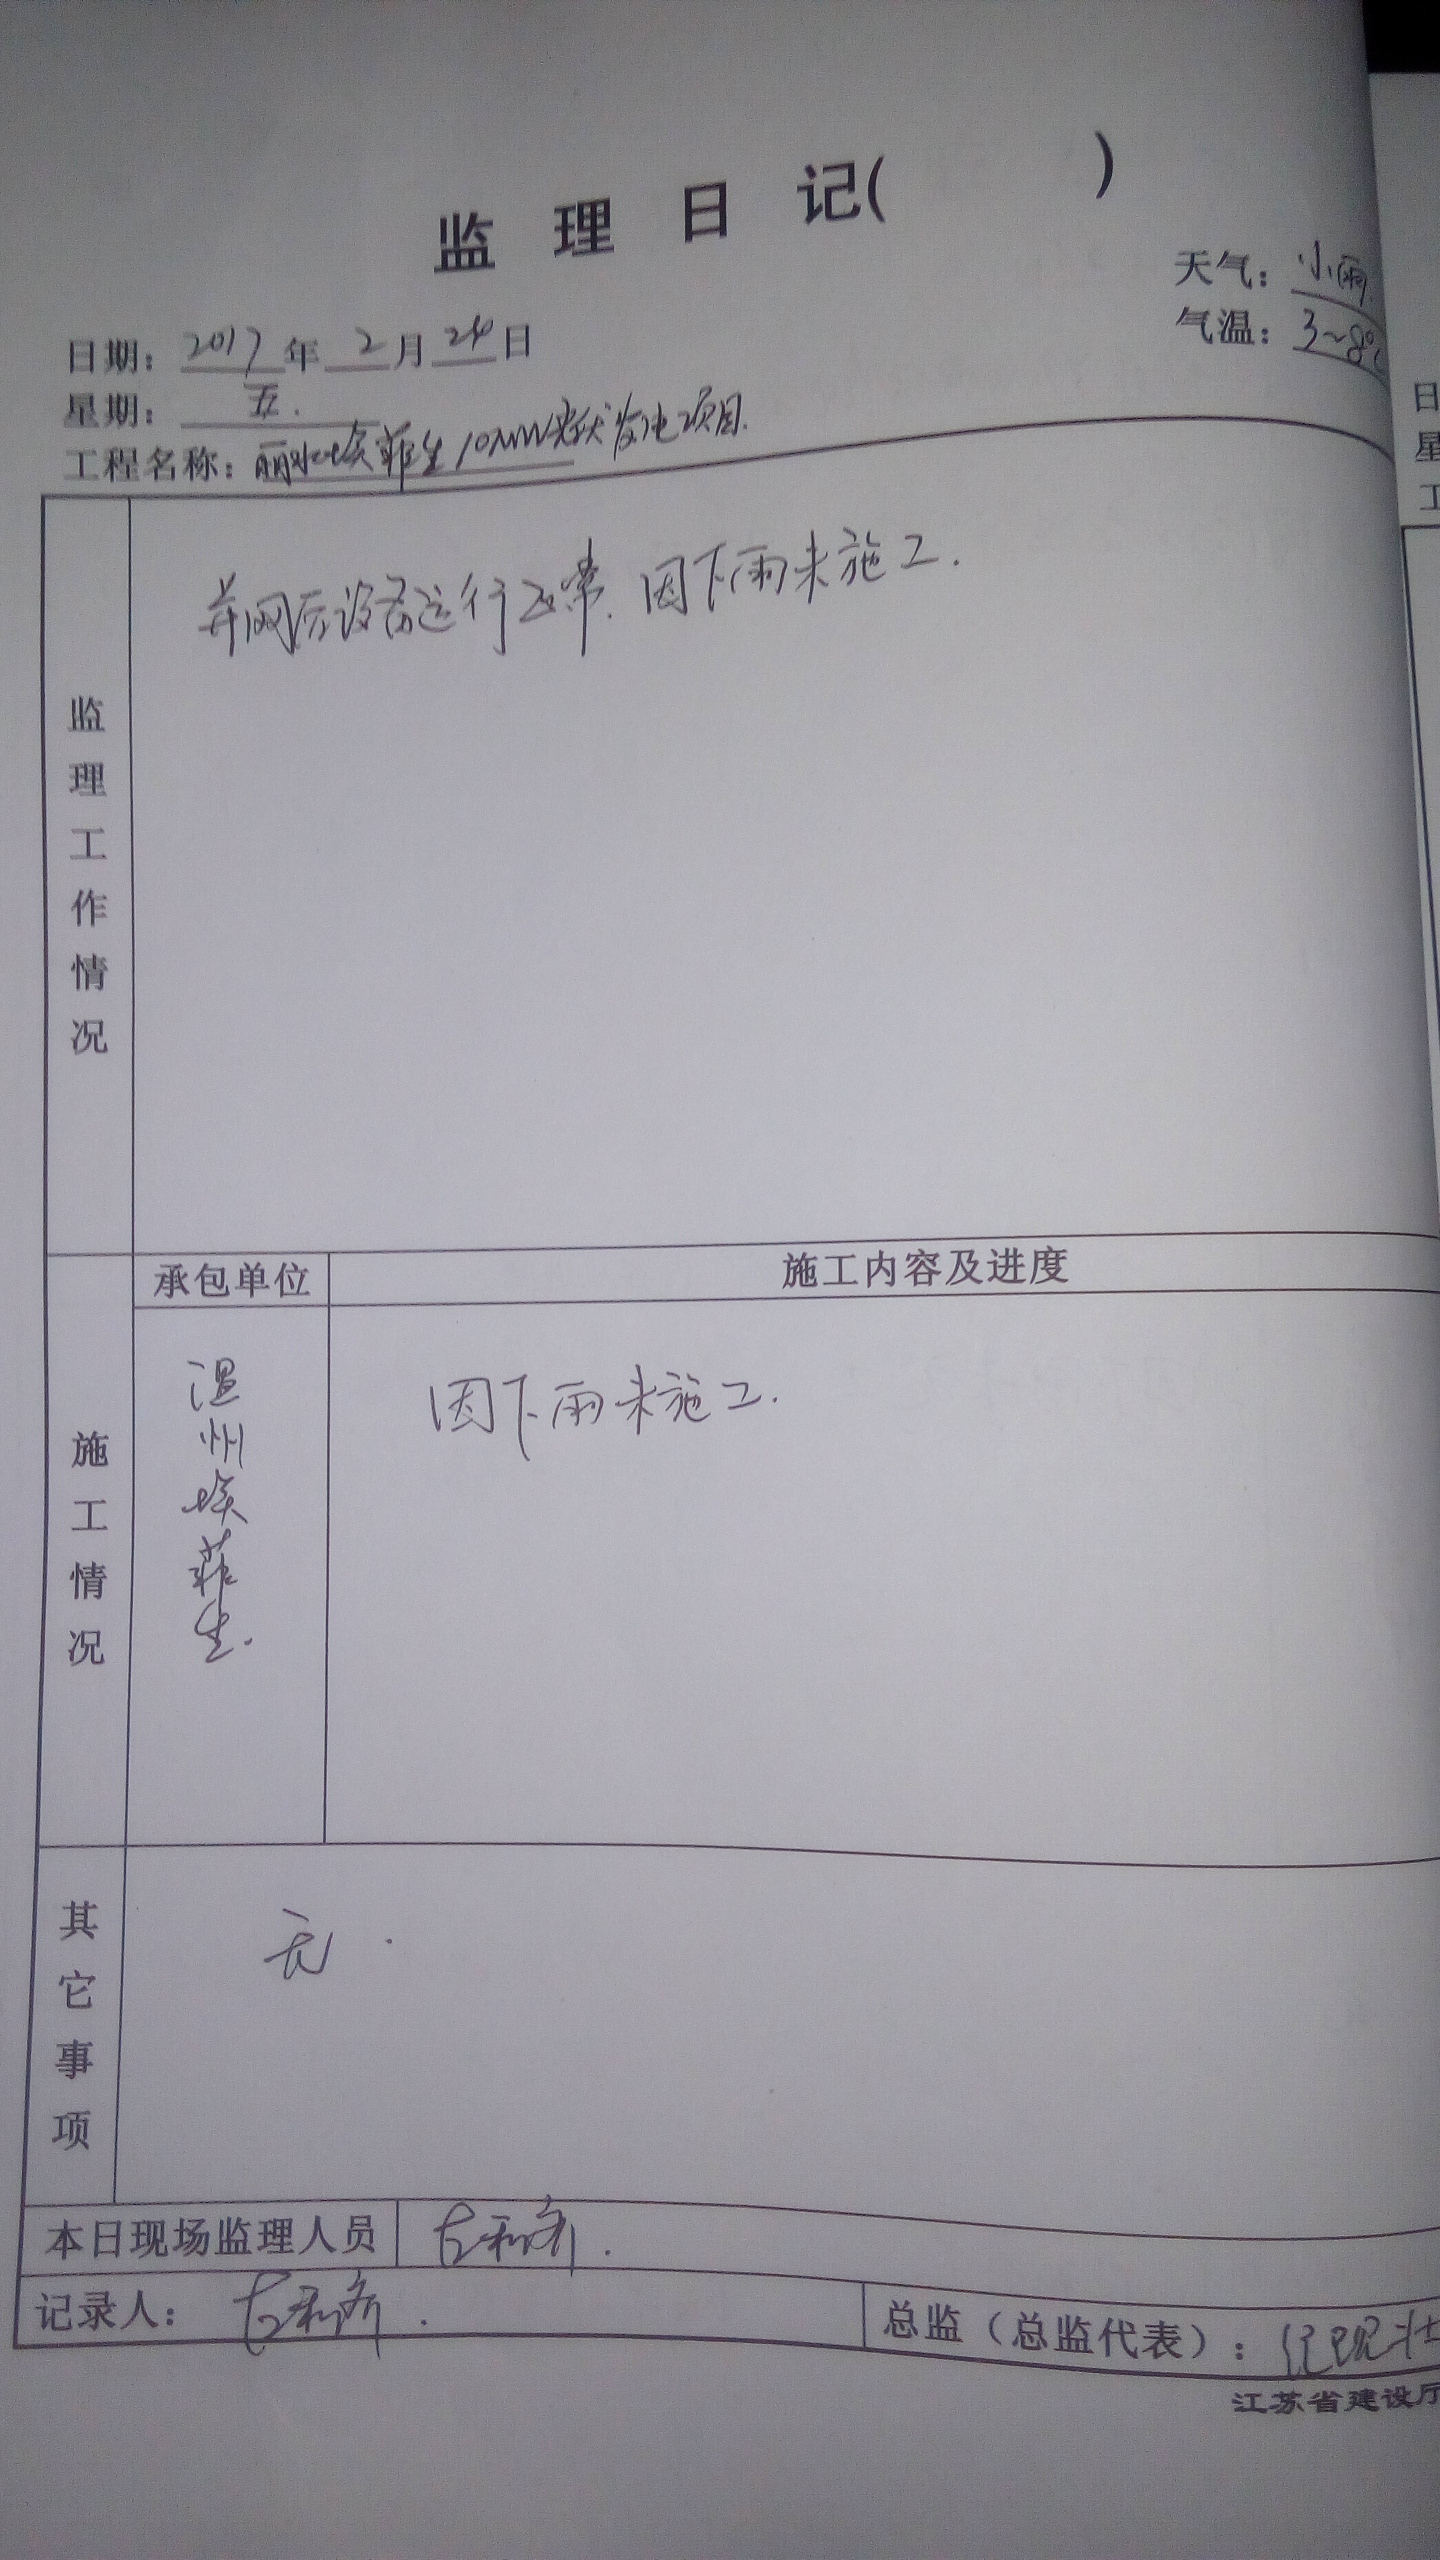 监理日记( )
天气：小雨.
气温：3~8℃
日期：2017年2月24日
星期：五.
工程名称：丽水埃菲生10MW光伏发电项目.
监理工作情况
并网后设备运行正常.因下雨未施工.
施工情况
承包单位
施工内容及进度
温州埃菲生.
因下雨未施工.
其它事项
无.
本日现场监理人员
记录人：
总监（总监代表）：
江苏省建设厅
日
星
工